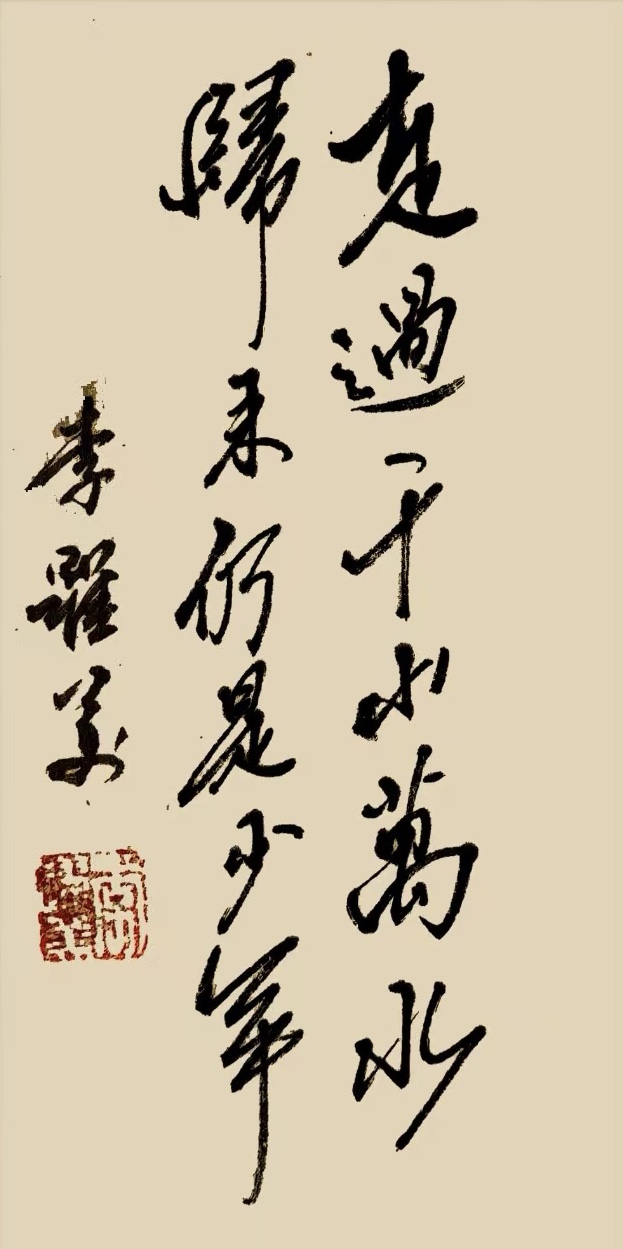 走過千山萬水
歸来仍是少年
李羅